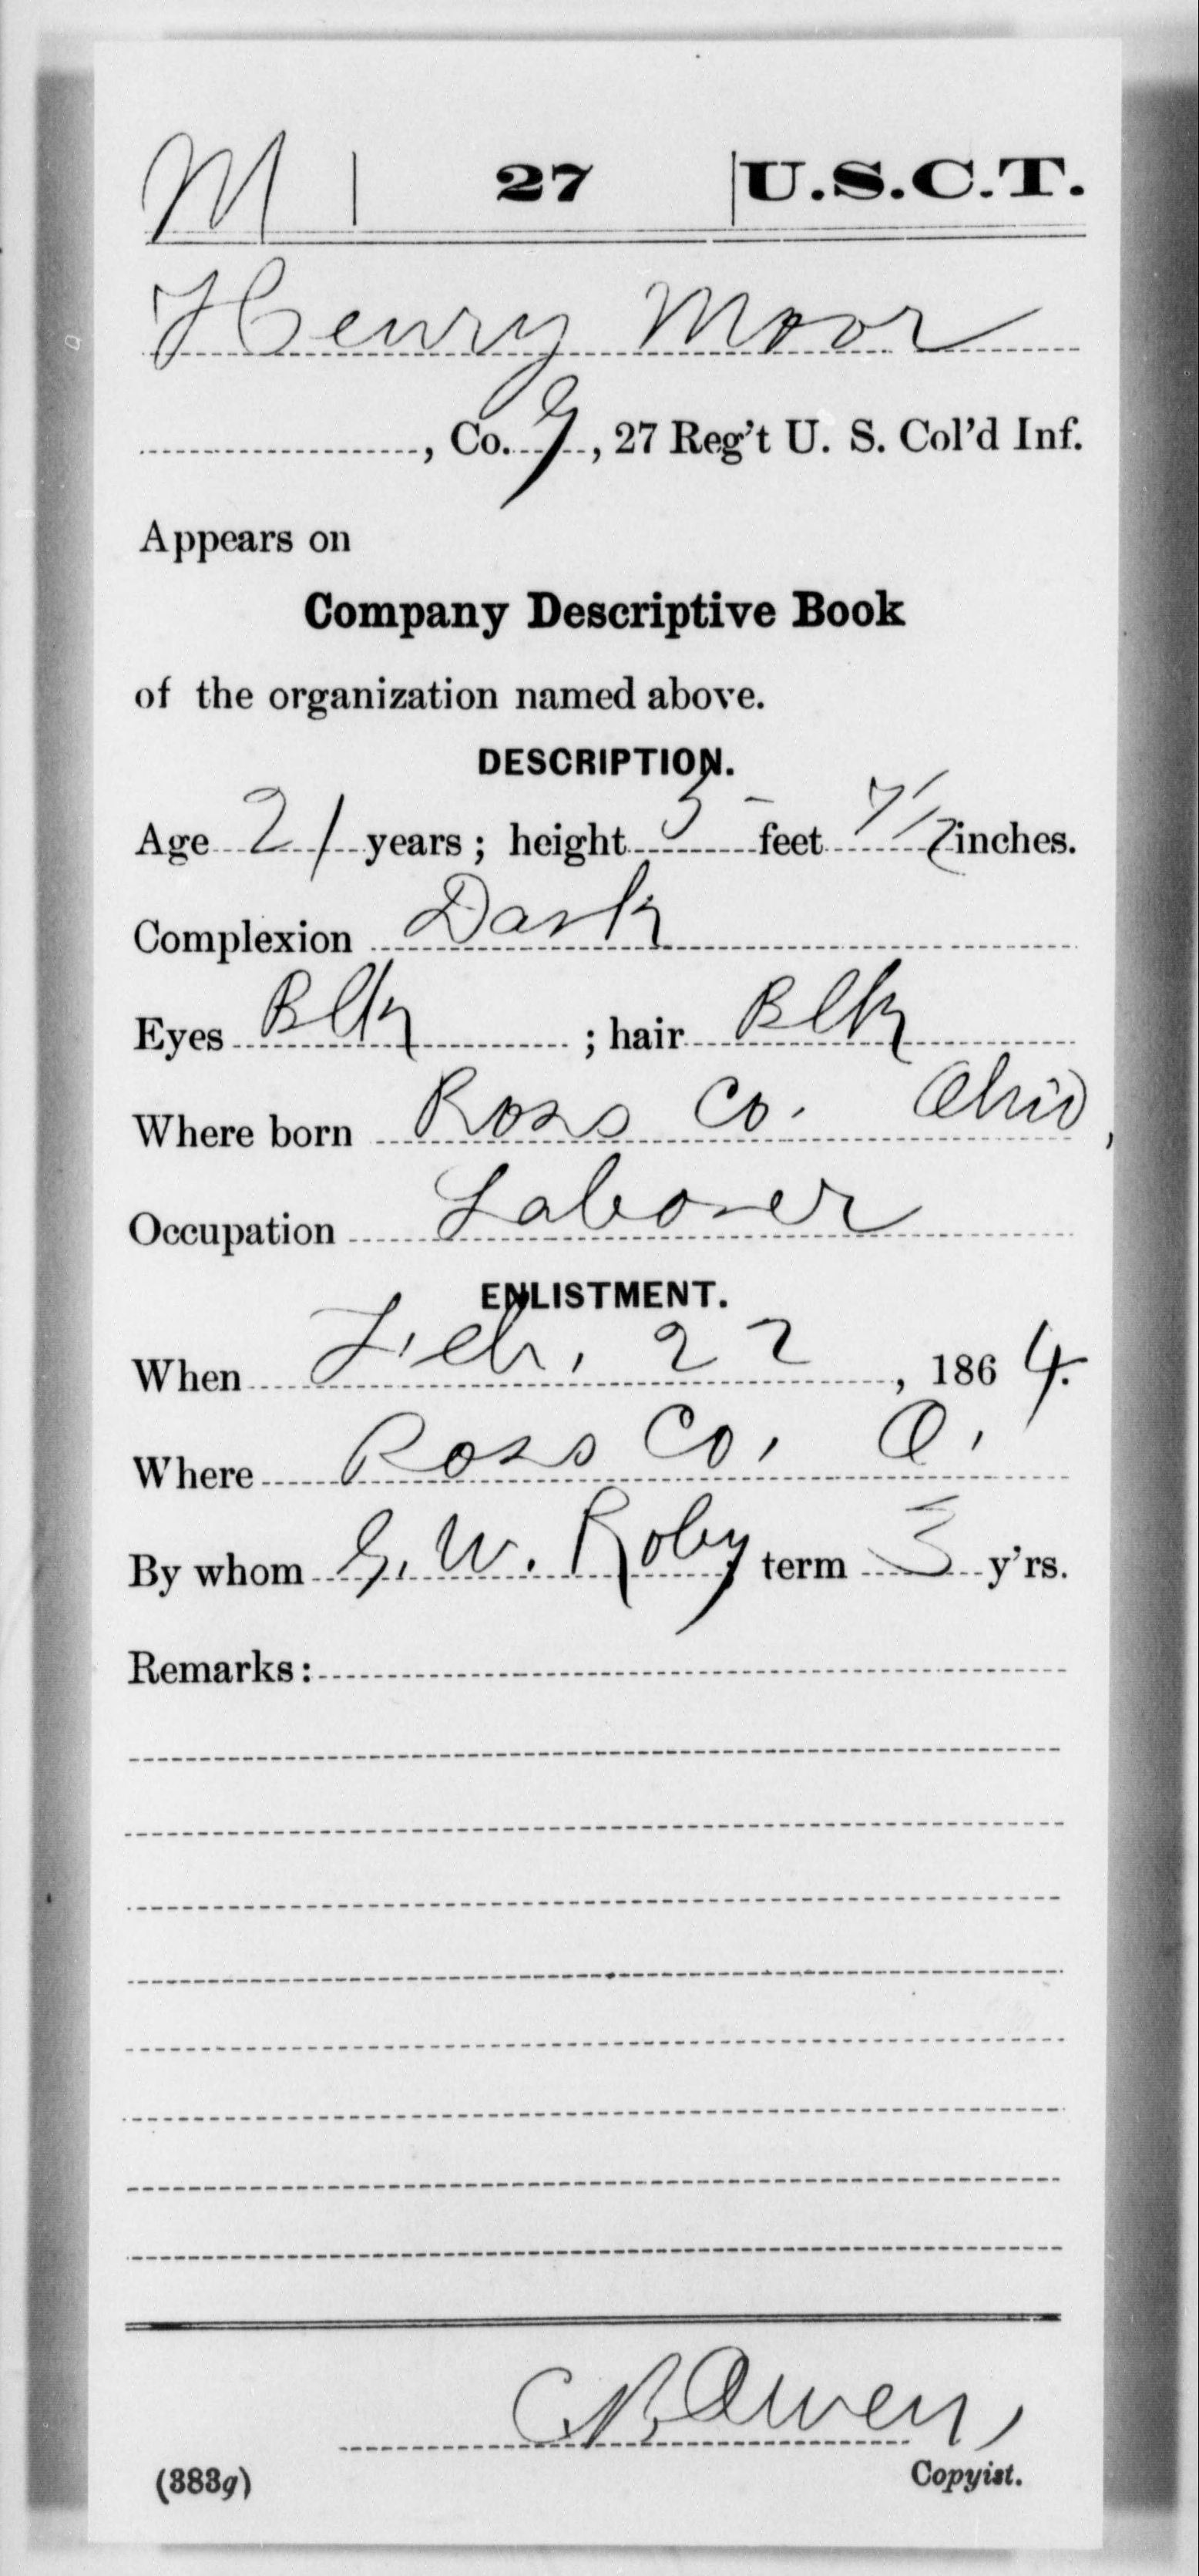 M | 27 | U.S.C.T.
Henry Moor
, Co. G, 27 Reg't U. S. Col'd Inf.
Appears on
Company Descriptive Book
of the organization named above.
DESCRIPTION.
Age 21 years; height 5 feet 7 1/2 inches.
Complexion Dark
Eyes Blk ; hair Blk
Where born Ross Co. Ohio,
Occupation Laborer
ENLISTMENT.
When Feb. 22, 1864.
Where Ross Co. O.
By whom G. W. Roby term 3 y'rs.
Remarks:
Owen
(383g) Copyist.